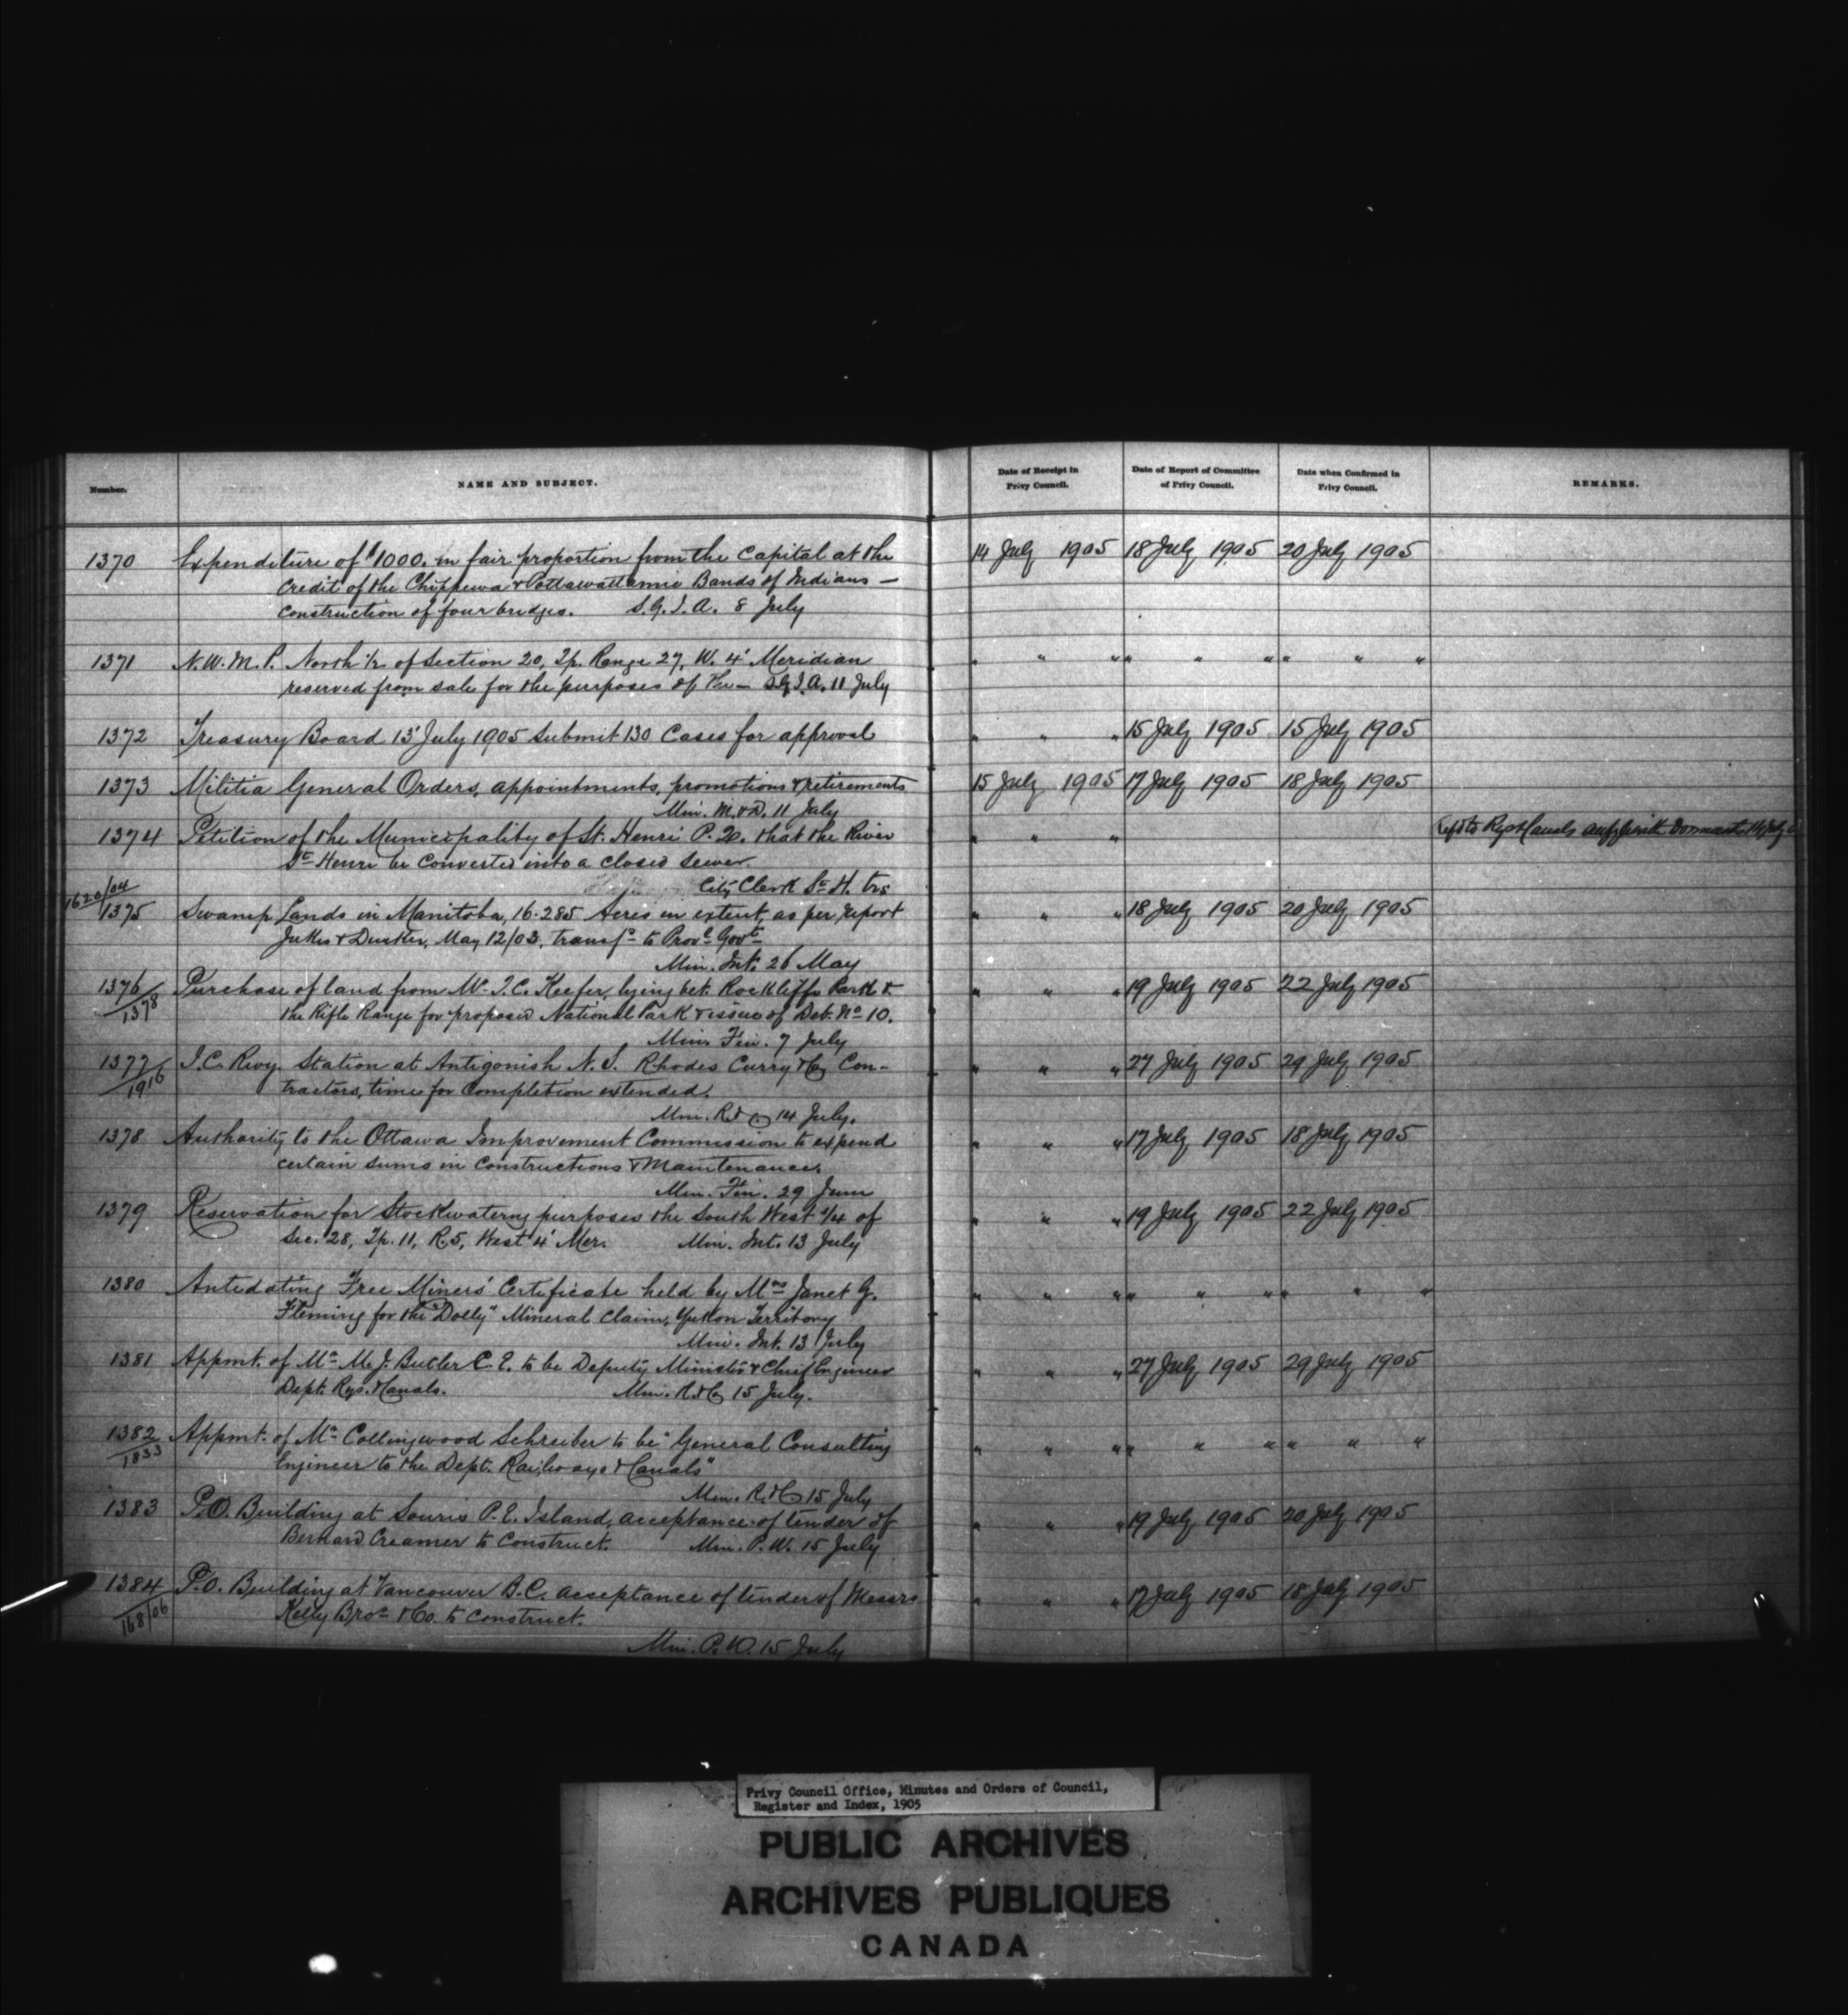 Number.
NAME AND SUBJECT.
Date of Receipt in Privy Council.
Date of Report of Committee of Privy Council.
Date when Confirmed in Privy Council.
REMARKS.
1370 Expenditure of $1000. in fair proportion from the Capital at the 14 July 1905 18 July 1905 20 July 1905
Credit of the Chippewa & Pottawattamie Bands of Indians —
construction of four bridges. S.G.I.A. 8 July
1371 N.W.M.P. North ½ of Section 20, Tp. Range 27, W. 4' Meridian " " " " " " " " "
reserved from sale for the purposes of the — S.G.I.A. 11 July
1372 Treasury Board 13' July 1905 Submit 130 Cases for approval " " " 15 July 1905 15 July 1905
1373 Militia General Orders, appointments, promotions & retirements 15 July 1905 17 July 1905 18 July 1905
Min. M. & D. 11 July
1374 Petition of the Municipality of St. Henri P.Q. that the River " " "
St. Henri be converted into a closed sewer.
City Clerk St. H. trs
1620/04
1375 Swamp Lands in Manitoba, 16.285 Acres in extent, as per report " " " 18 July 1905 20 July 1905
May 12/03, transf. to Provl. Govt.
Min. Int. 26 May
1376 Purchase of land from Mr. T.C. Keefer, lying bet. Rockliffe Park & " " " 19 July 1905 22 July 1905
1378 the Rifle Range for proposed National Park & issue of Deb. No. 10.
Min. Fin. 7 July
1377 I.C. Rwy. Station at Antigonish N.S. Rhodes Curry & Co Con- " " " 27 July 1905 29 July 1905
1916 tractors, time for completion extended.
Min. R. & C. 14 July.
1378 Authority to the Ottawa Improvement Commission to expend " " " 17 July 1905 18 July 1905
certain sums in constructions & Maintenance.
Min. Fin. 29 June
1379 Reservation for Stockwatering purposes the South West ¼ of " " " 19 July 1905 22 July 1905
Sec. 28, Tp. 11, R. 5, West 4' Mer. Min. Int. 13 July
1380 Antedating Free Miners' Certificate held by Mrs Janet G. " " " " " " " " "
Fleming for the "Dolly" Mineral Claim, Yukon Territory
Min. Int. 13 July
1381 Appmt. of Mr. M.J. Butler C.E. to be Deputy Minister & Chief Engineer " " " 27 July 1905 29 July 1905
Dept. Rys. & Canals. Min. R. & C. 15 July.
1382 Appmt. of Mr. Collingwood Schreiber to be "General Consulting " " " " " " " " "
1833 Engineer to the Dept. Railways & Canals"
Min. R. & C 15 July
1383 P.O. Building at Souris P.E. Island, acceptance of tender of " " " 19 July 1905 20 July 1905
Bernard Creamer to Construct. Min. P.W. 15 July
1384 P.O. Building at Vancouver B.C. acceptance of tender of Messrs " " " 17 July 1905 18 July 1905
168/06 Kelly Bros & Co. to construct.
Min. P.W. 15 July
Privy Council Office, Minutes and Orders of Council,
Register and Index, 1905
PUBLIC ARCHIVES
ARCHIVES PUBLIQUES
CANADA